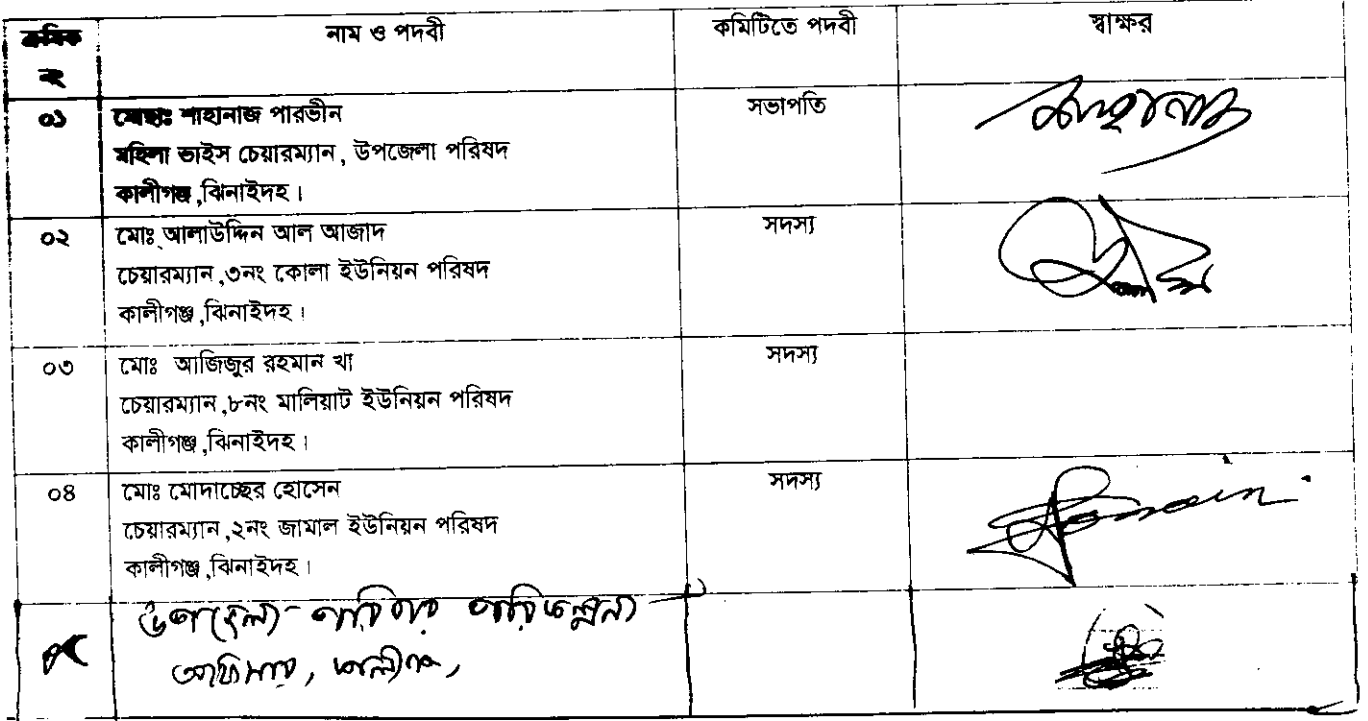 ক্রমিক নাম ও পদবী কমিটিতে পদবী স্বাক্ষর
নং
০১ মোছাঃ শাহানাজ পারভীন সভাপতি শাহানাজ
মহিলা ভাইস চেয়ারম্যান, উপজেলা পরিষদ
কালীগঞ্জ,ঝিনাইদহ।
০২ মোঃ আলাউদ্দিন আল আজাদ সদস্য
চেয়ারম্যান,৩নং কোলা ইউনিয়ন পরিষদ
কালীগঞ্জ,ঝিনাইদহ।
০৩ মোঃ আজিজুর রহমান খা সদস্য
চেয়ারম্যান,৮নং মালিয়াট ইউনিয়ন পরিষদ
কালীগঞ্জ,ঝিনাইদহ।
০৪ মোঃ মোদাচ্ছের হোসেন সদস্য
চেয়ারম্যান,২নং জামাল ইউনিয়ন পরিষদ
কালীগঞ্জ,ঝিনাইদহ।
উপজেলা পরিবার পরিকল্পনা
অফিসার,